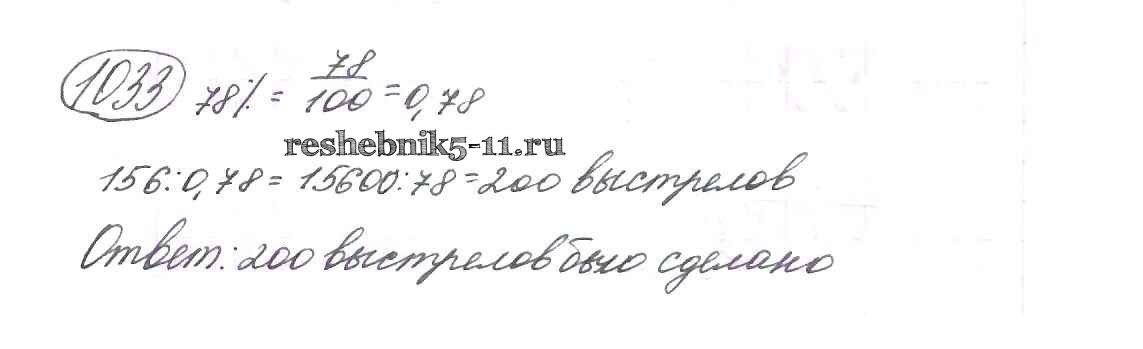 1033 78% = 78/100 = 0,78
reshebnik5-11.ru
156:0,78 = 15600:78 = 200 выстрелов
Ответ: 200 выстрелов было сделано